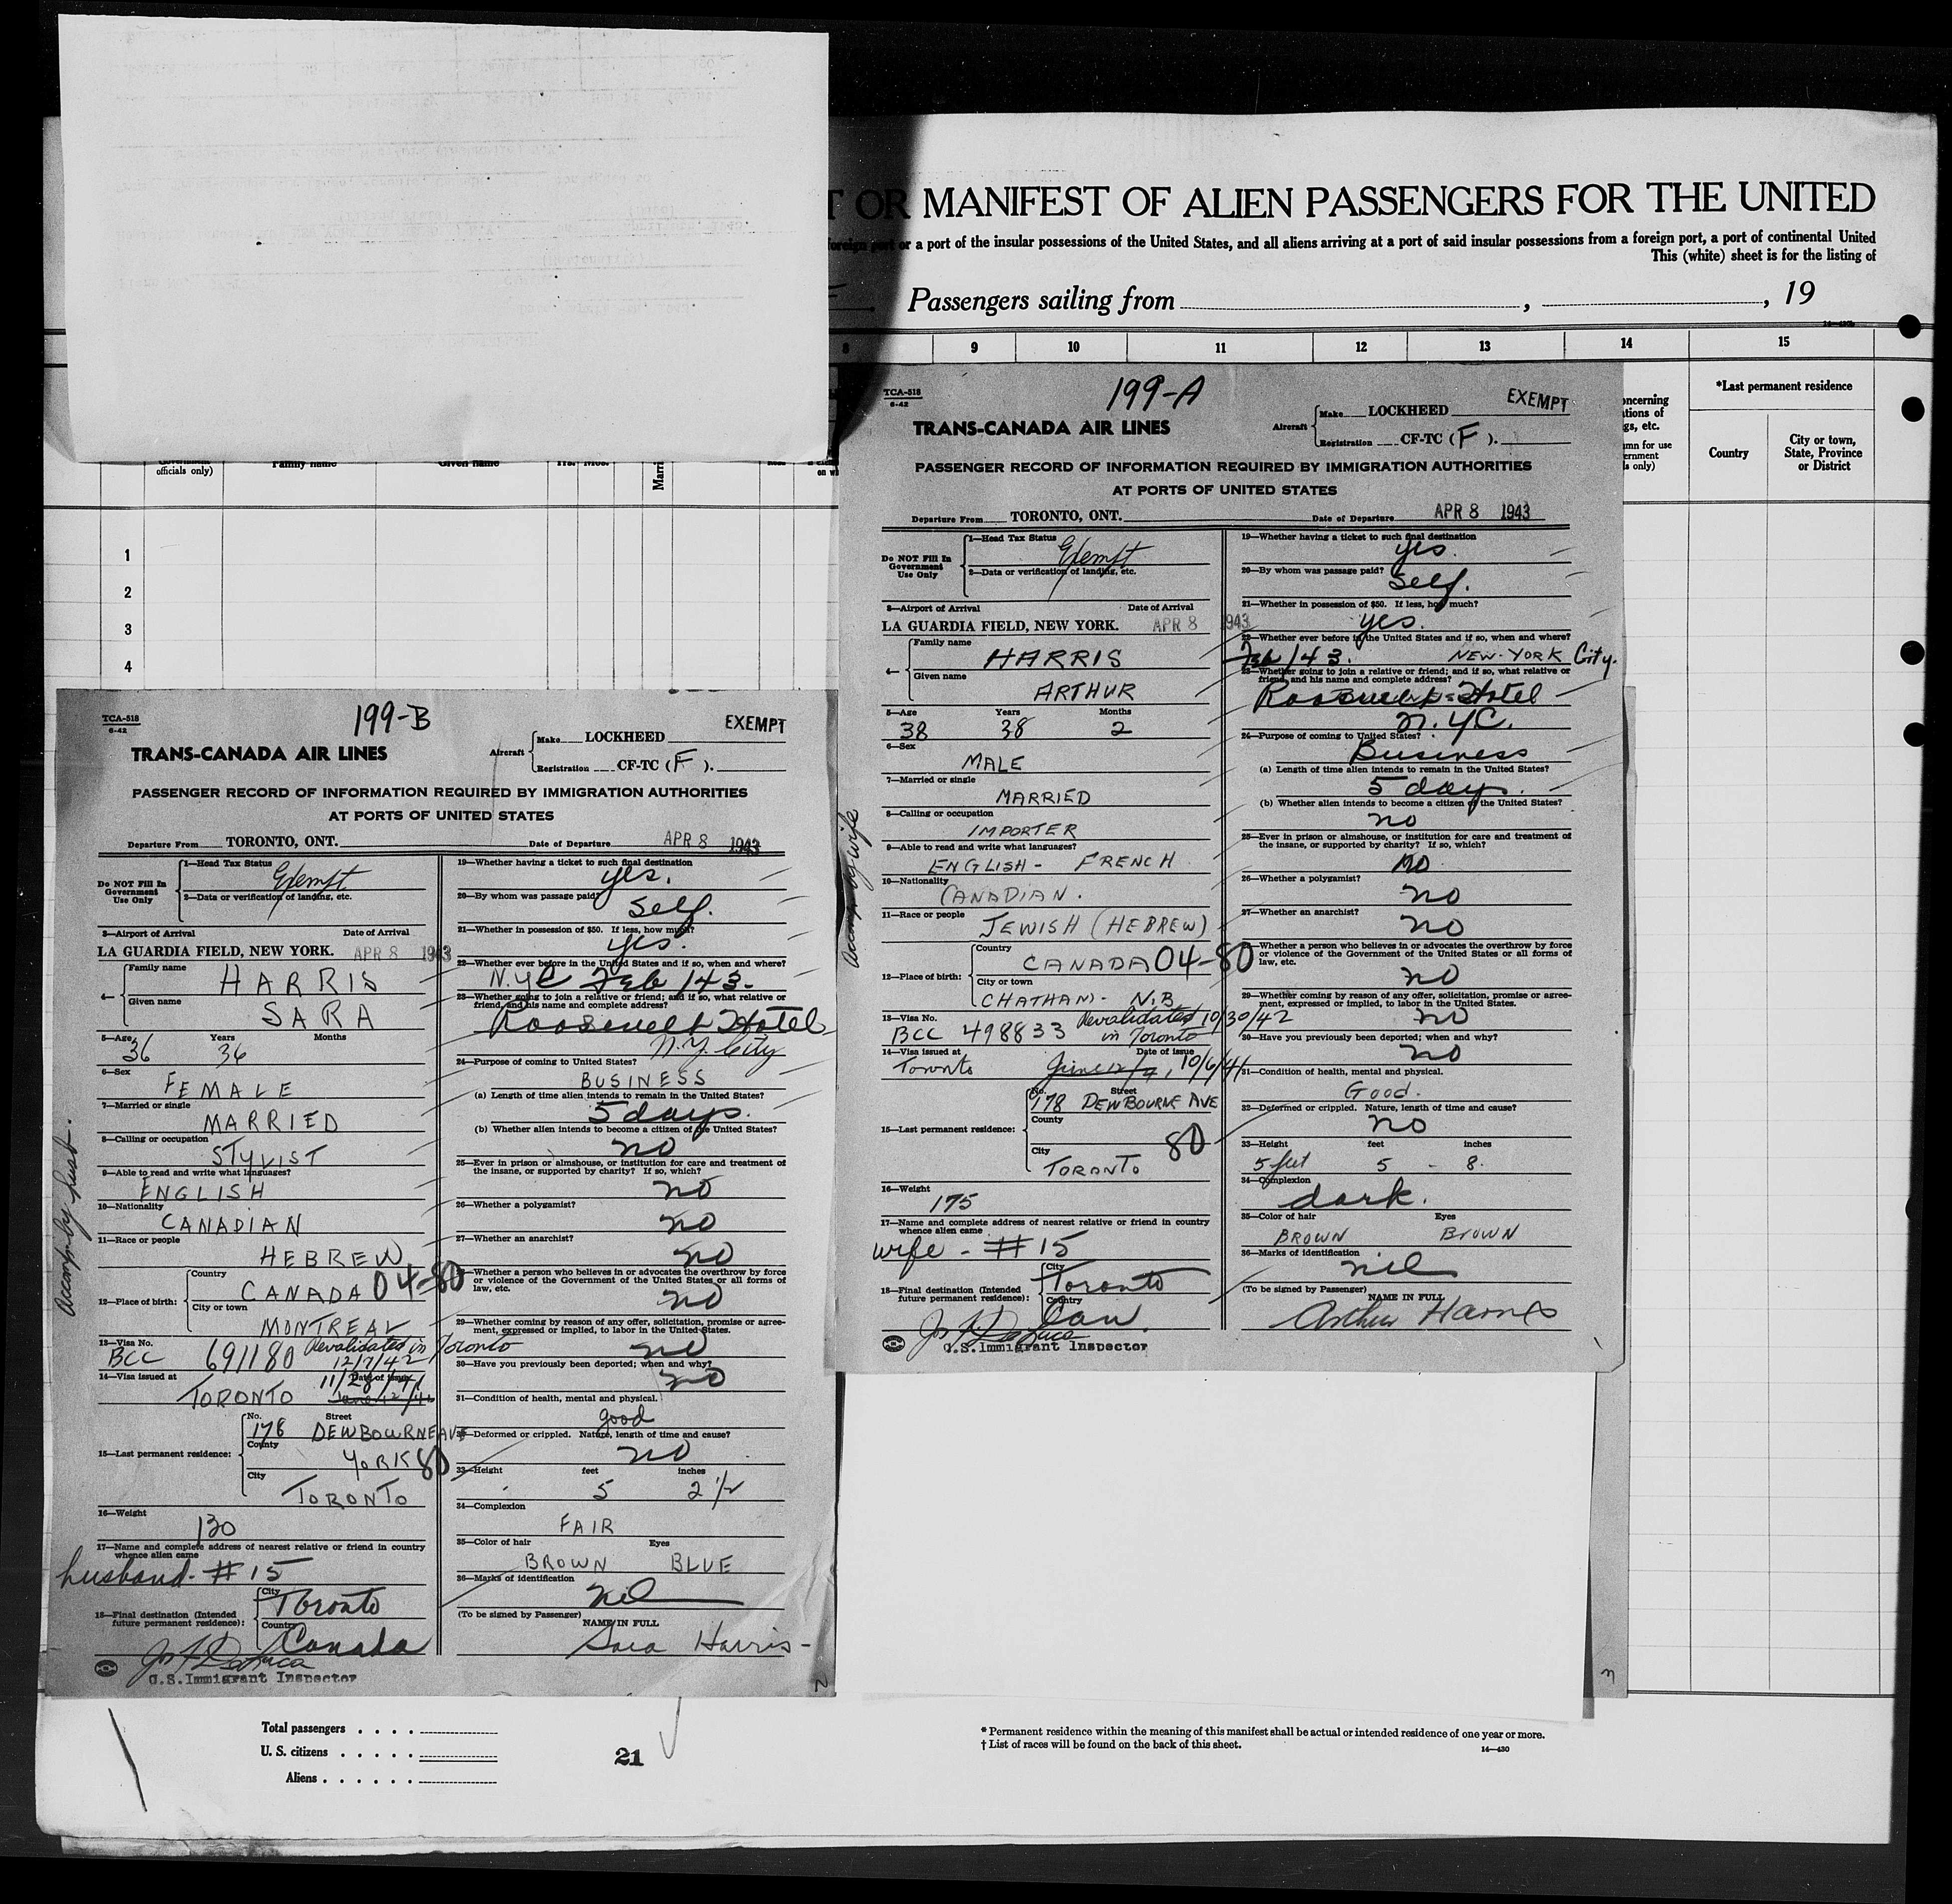 T OR MANIFEST OF ALIEN PASSENGERS FOR THE UNITED
foreign port or a port of the insular possessions of the United States, and all aliens arriving at a port of said insular possessions from a foreign port, a port of continental United
This (white) sheet is for the listing of
Passengers sailing from , , 19
8 9 10 11 12 13 14 15
*Last permanent residence
Country
City or town, State, Province or District
officials only) Family name Given name Yrs. Mos.
1
2
3
4
TCA-518
6-42
199-A
EXEMPT
TRANS-CANADA AIR LINES
Aircraft Make LOCKHEED
Registration CF-TC (F).
PASSENGER RECORD OF INFORMATION REQUIRED BY IMMIGRATION AUTHORITIES
AT PORTS OF UNITED STATES
Departure From TORONTO, ONT. Date of Departure APR 8 1943
Do NOT Fill In Government Use Only
1—Head Tax Status Exempt
2—Data or verification of landing, etc.
3—Airport of Arrival Date of Arrival
LA GUARDIA FIELD, NEW YORK. APR 8 1943
4— Family name HARRIS
Given name ARTHUR
5—Age Years Months
38 38 2
6—Sex
MALE
7—Married or single
MARRIED
8—Calling or occupation
IMPORTER
9—Able to read and write what languages?
ENGLISH - FRENCH
10—Nationality
CANADIAN.
11—Race or people
JEWISH (HEBREW)
12—Place of birth: Country
CANADA 04-80
City or town
CHATHAM - N.B.
13—Visa No. Revalidated 10/30/42
BCC 498833 in Toronto
14—Visa issued at Date of issue
Toronto June 12/42, 10/6/41
15—Last permanent residence: No. Street
178 DEWBOURNE AVE
County
80
City
TORONTO
16—Weight
175
17—Name and complete address of nearest relative or friend in country whence alien came
wife - #15
18—Final destination (Intended future permanent residence): City
Toronto
Country
Can.
U.S. Immigrant Inspector
Accomp by wife
19—Whether having a ticket to such final destination
yes.
20—By whom was passage paid?
Self.
21—Whether in possession of $50. If less, how much?
yes.
22—Whether ever before in the United States and if so, when and where?
Feb/43. NEW-YORK City.
23—Whether going to join a relative or friend; and if so, what relative or friend and his name and complete address?
Roosevelt Hotel
N.Y.C.
24—Purpose of coming to United States?
Business
(a) Length of time alien intends to remain in the United States?
5 days.
(b) Whether alien intends to become a citizen of the United States?
no
25—Ever in prison or almshouse, or institution for care and treatment of the insane, or supported by charity? If so, which?
no
26—Whether a polygamist?
no
27—Whether an anarchist?
no
28—Whether a person who believes in or advocates the overthrow by force or violence of the Government of the United States or all forms of law, etc.
no
29—Whether coming by reason of any offer, solicitation, promise or agreement, expressed or implied, to labor in the United States.
no
30—Have you previously been deported; when and why?
no
31—Condition of health, mental and physical.
Good.
32—Deformed or crippled. Nature, length of time and cause?
no
33—Height feet inches
5 feet 5 - 8.
34—Complexion
dark.
35—Color of hair Eyes
BROWN BROWN
36—Marks of identification
nil
(To be signed by Passenger)
NAME IN FULL
Arthur Harris
TCA-518
6-42
199-B
EXEMPT
TRANS-CANADA AIR LINES
Aircraft Make LOCKHEED
Registration CF-TC (F).
PASSENGER RECORD OF INFORMATION REQUIRED BY IMMIGRATION AUTHORITIES
AT PORTS OF UNITED STATES
Departure From TORONTO, ONT. Date of Departure APR 8 1943
Do NOT Fill In Government Use Only
1—Head Tax Status Exempt
2—Data or verification of landing, etc.
3—Airport of Arrival Date of Arrival
LA GUARDIA FIELD, NEW YORK. APR 8 1943
4— Family name HARRIS
Given name SARA
5—Age Years Months
36 36
6—Sex
FEMALE
7—Married or single
MARRIED
8—Calling or occupation
STYLIST
9—Able to read and write what languages?
ENGLISH
10—Nationality
CANADIAN
11—Race or people
HEBREW
12—Place of birth: Country
CANADA 04-80
City or town
MONTREAL
13—Visa No. Revalidated in Toronto
BCC 691180 12/7/42
14—Visa issued at Date of issue
TORONTO 11/28/41 June 12/42
15—Last permanent residence: No. Street
178 DEWBOURNE AVE
County
YORK 80
City
TORONTO
16—Weight
130
17—Name and complete address of nearest relative or friend in country whence alien came
husband - #15
18—Final destination (Intended future permanent residence): City
Toronto
Country
Canada
U.S. Immigrant Inspector
Accomp by husb.
19—Whether having a ticket to such final destination
yes.
20—By whom was passage paid?
Self.
21—Whether in possession of $50. If less, how much?
yes.
22—Whether ever before in the United States and if so, when and where?
N.Y.C Feb/43-
23—Whether going to join a relative or friend; and if so, what relative or friend, and his name and complete address?
Roosevelt Hotel
N.Y. City
24—Purpose of coming to United States?
BUSINESS
(a) Length of time alien intends to remain in the United States?
5 days.
(b) Whether alien intends to become a citizen of the United States?
no
25—Ever in prison or almshouse, or institution for care and treatment of the insane, or supported by charity? If so, which?
no
26—Whether a polygamist?
no
27—Whether an anarchist?
no
28—Whether a person who believes in or advocates the overthrow by force or violence of the Government of the United States or all forms of law, etc.
no
29—Whether coming by reason of any offer, solicitation, promise or agreement, expressed or implied, to labor in the United States.
no
30—Have you previously been deported; when and why?
no
31—Condition of health, mental and physical.
good
32—Deformed or crippled. Nature, length of time and cause?
no
33—Height feet inches
5 2 1/2
34—Complexion
FAIR
35—Color of hair Eyes
BROWN BLUE
36—Marks of identification
nil
(To be signed by Passenger)
NAME IN FULL
Sara Harris-
Total passengers . . . .
U. S. citizens . . . . .
Aliens . . . . . .
21
* Permanent residence within the meaning of this manifest shall be actual or intended residence of one year or more.
† List of races will be found on the back of this sheet.
14—430